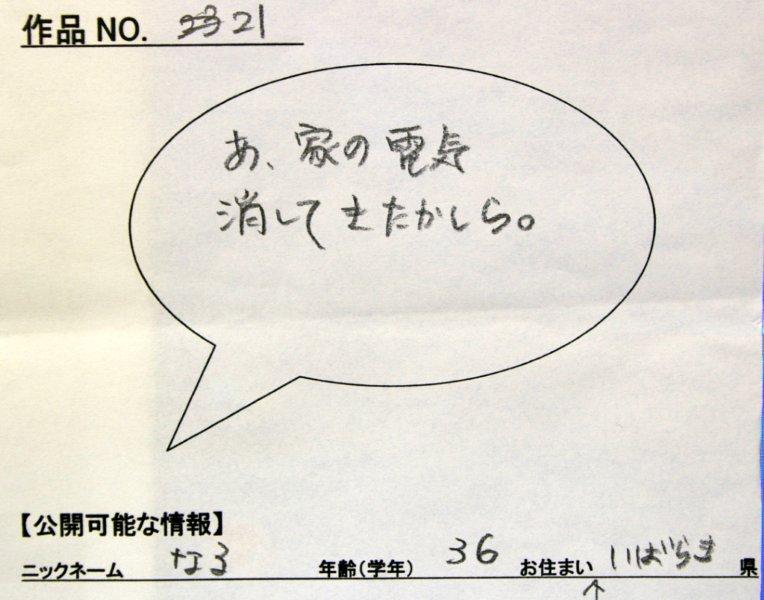 作品 NO. 21
あ、家の電気
消してきたかしら。
【公開可能な情報】
ニックネーム なる 年齢(学年) 36 お住まい いばらき 県